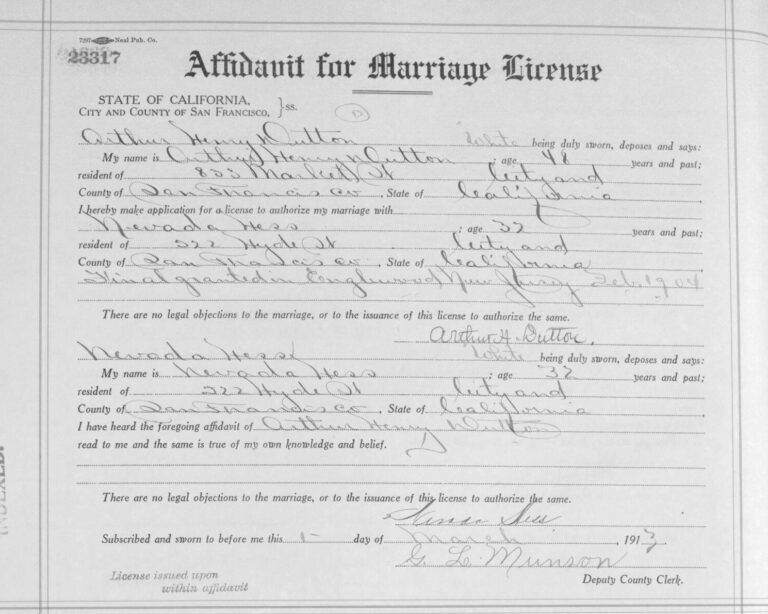 7297 Neal Pub. Co.
23317
Affidavit for Marriage License
STATE OF CALIFORNIA,
CITY AND COUNTY OF SAN FRANCISCO, } ss.
Arthur Henry Dutton White being duly sworn, deposes and says:
My name is Arthur Henry Dutton ; age 48 years and past;
resident of 855 Market St City and
County of San Francisco , State of California
I hereby make application for a license to authorize my marriage with
Nevada Hess ; age 32 years and past;
resident of 522 Hyde St City and
County of San Francisco , State of California
Final granted in Englewood New Jersey Feb. 1904
There are no legal objections to the marriage, or to the issuance of this license to authorize the same.
Arthur H. Dutton.
Nevada Hess White being duly sworn, deposes and says:
My name is Nevada Hess ; age 32 years and past;
resident of 522 Hyde St City and
County of San Francisco , State of California
I have heard the foregoing affidavit of Arthur Henry Dutton
read to me and the same is true of my own knowledge and belief.
There are no legal objections to the marriage, or to the issuance of this license to authorize the same.
Hess
Subscribed and sworn to before me this 1- day of March , 1913
G. L. Munson
Deputy County Clerk.
License issued upon
within affidavit
INDEXED.